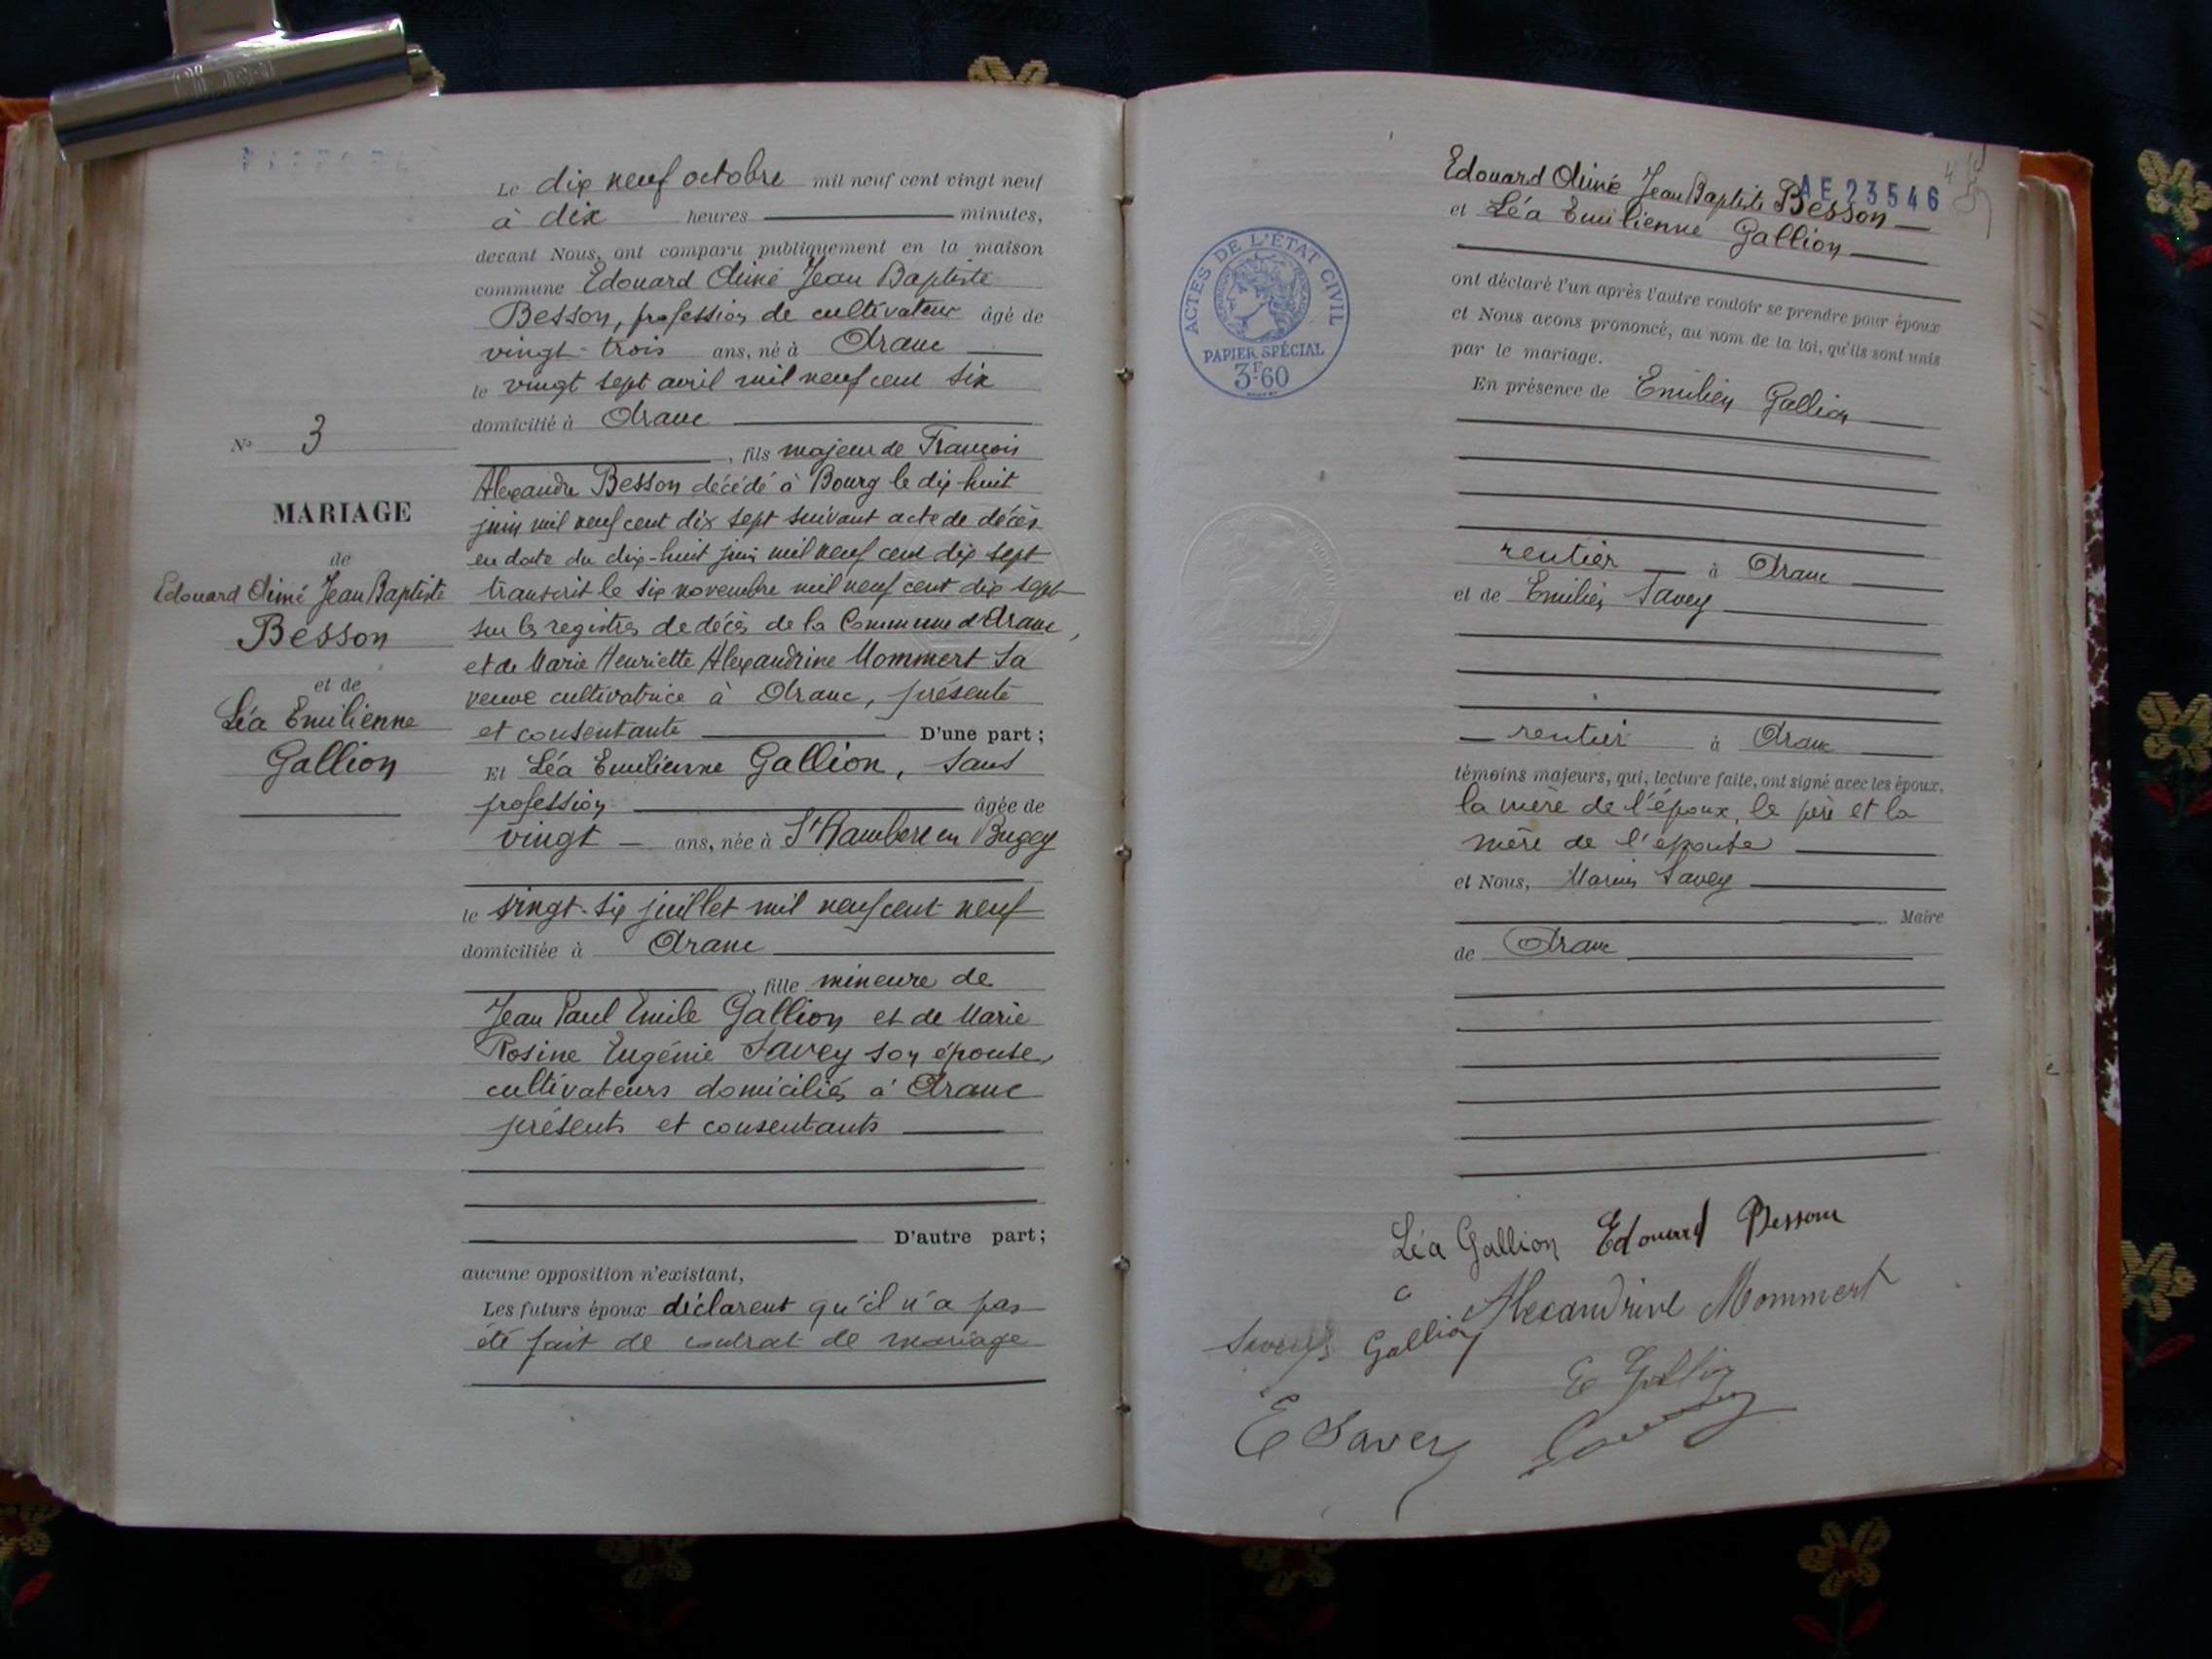 Le dix neuf octobre mil neuf cent vingt neuf
à dix heures minutes,
devant Nous, ont comparu publiquement en la maison
commune Edouard Aimé Jean Baptiste
Besson, profession de cultivateur âgé de
vingt-trois ans, né à Aranc
le vingt sept avril mil neuf cent six
domicilié à Aranc
, fils majeur de François
Alexandre Besson décédé à Bourg le dix-huit
juin mil neuf cent dix sept suivant acte de décès
en date du dix-huit juin mil neuf cent dix sept
transcrit le six novembre mil neuf cent dix sept
sur les registres de décès de la Commune d'Aranc,
et de Marie Henriette Alexandrine Mommert sa
veuve cultivatrice à Aranc, présente
et consentante D'une part;
Et Léa Emilienne Gallion, sans
profession âgée de
vingt ans, née à St Rambert en Bugey
le vingt-six juillet mil neuf cent neuf
domiciliée à Aranc
, fille mineure de
Jean Paul Emile Gallion et de Marie
Rosine Eugénie Savey son épouse,
cultivateurs domiciliés à Aranc
présents et consentants
D'autre part;
aucune opposition n'existant,
Les futurs époux déclarent qu'il n'a pas
été fait de contrat de mariage
No 3
MARIAGE
de
Edouard Aimé Jean Baptiste
Besson
et de
Léa Emilienne
Gallion
AE 23546
Edouard Aimé Jean Baptiste Besson
et Léa Emilienne Gallion
ont déclaré l'un après l'autre vouloir se prendre pour époux
et Nous avons prononcé, au nom de la loi, qu'ils sont unis
par le mariage.
En présence de Emilien Gallion
rentier à Aranc
et de Emilien Savey
rentier à Aranc
témoins majeurs, qui, lecture faite, ont signé avec les époux,
la mère de l'époux, le père et la
mère de l'épouse
et Nous, Marius Savey
Maire
de Aranc
ACTES DE L'ÉTAT CIVIL
PAPIER SPÉCIAL
3F60
Léa Gallion Edouard Besson
Alexandrine Mommert
Gallion
E Gallion
E Savey